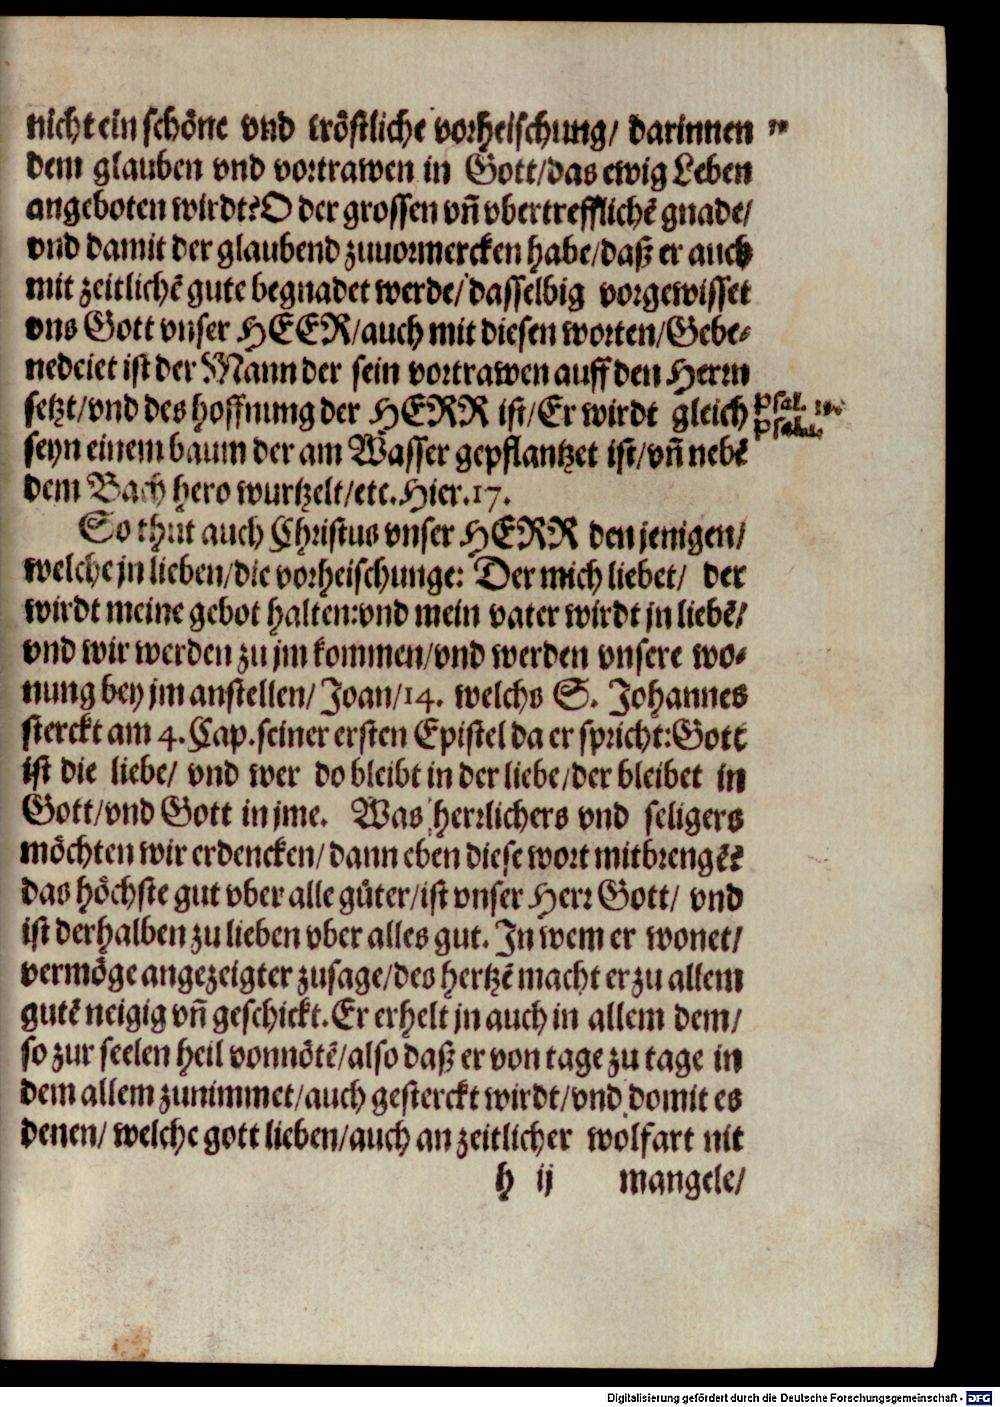 nicht ein schöne vnd tröstliche vorheischung/ darinnen
dem glauben vnd vortrawen in Gott/das ewig Leben
angeboten wirdt? O der grossen vñ vbertrefflichẽ gnade/
vnd damit der glaubend zuuormercken habe/daß er auch
mit zeitlichẽ gute begnadet werde/dasselbig vorgewisset
vns Gott vnser HEER/auch mit diesen worten/Gebe-
nedeiet ist der Mann der sein vortrawen auff den Herrn
setzt/vnd des hoffnung der HERR ist/Er wirdt gleich
Psal.
seyn einem baum der am Wasser gepflantzet ist/vñ nebẽ
dem Bach hero wurtzelt/etc. Hier.17.
So thut auch Christus vnser HERR den jenigen/
welche jn lieben/die vorheischunge: Der mich liebet/ der
wirdt meine gebot halten:vnd mein vater wirdt jn liebẽ/
vnd wir werden zu jm kommen/vnd werden vnsere wo-
nung bey jm anstellen/ Joan/14. welchs S. Johannes
sterckt am 4. Cap. seiner ersten Epistel da er spricht: Gott
ist die liebe/ vnd wer do bleibt in der liebe/der bleibet in
Gott/vnd Gott in jme. Was herrlichers vnd seligers
möchten wir erdencken/ dann eben diese wort mitbrengẽ?
das höchste gut vber alle güter/ist vnser Herr Gott/ vnd
ist derhalben zu lieben vber alles gut. In wem er wonet/
vermöge angezeigter zusage/des hertzẽ macht er zu allem
gutẽ neigig vñ geschickt. Er erhelt jn auch in allem dem/
so zur seelen heil vonnötẽ/also daß er von tage zu tage in
dem allem zunimmet/auch gesterckt wirdt/vnd domit es
denen/ welche gott lieben/auch an zeitlicher wolfart nit
h ij mangele/
Digitalisierung gefördert durch die Deutsche Forschungsgemeinschaft - DFG